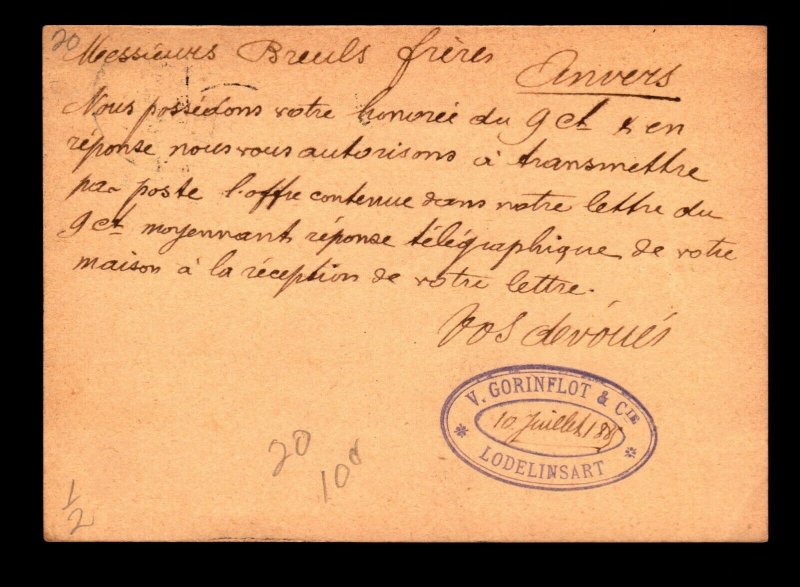 20
Messieurs Breuls frères
Anvers
Nous possédons votre honorée du 9 ct & en
réponse nous vous autorisons à transmettre
par poste l'offre contenue dans notre lettre du
9 ct moyennant réponse télégraphique de votre
maison à la réception de votre lettre.
Vos dévoués
V. GORINFLOT & CIE
10 Juillet
LODELINSART
20
1/2